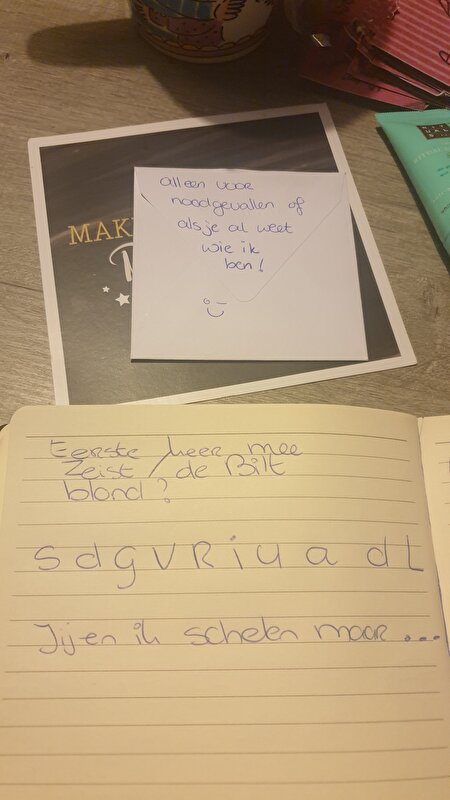 alleen voor
noodgevallen of
als je al weet
wie ik
ben!
MAK
Eerste keer mee
Zeist / de Bilt
blond?
s d g v R i u a d L
Jij en ik schelen maar ...